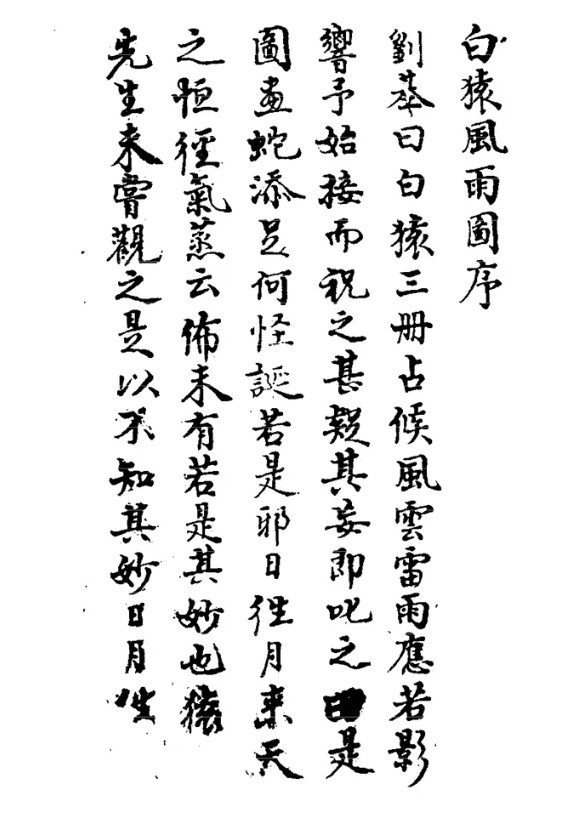 白猿風雨圖序
劉基曰白猿三册占候風雲雷雨應若影
響予始接而視之甚疑其妄即叱之曰是
圖畫蛇添足何怪誕若是耶日徃月来天
之恒徑氣蒸云佈未有若是其妙也猿
先生未嘗觀之是以不知其妙日月徃